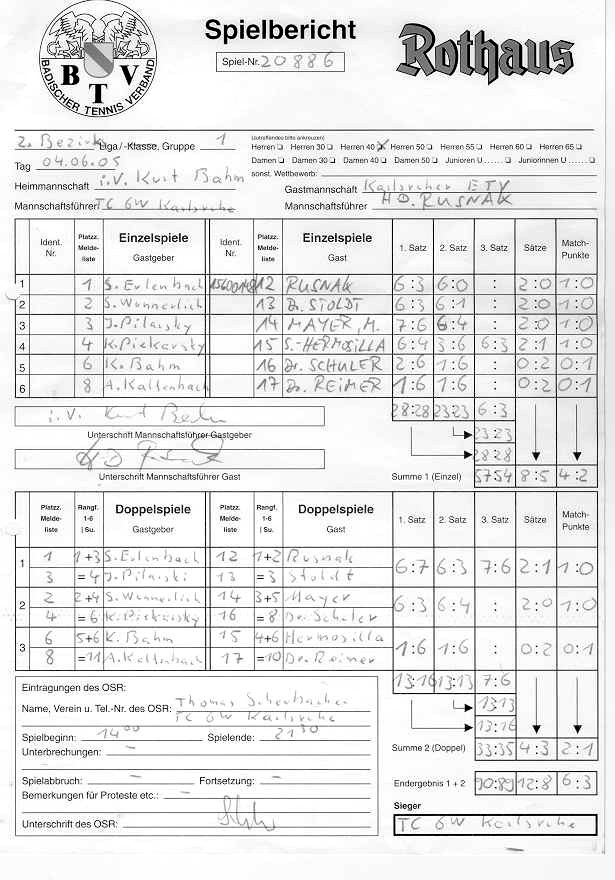 Spielbericht
Rothaus
BADISCHER TENNIS VERBAND
BTV
Spiel-Nr. 20886
(zutreffendes bitte ankreuzen)
2. Bezirk Liga/-Klasse, Gruppe 1
Herren Herren 30 Herren 40 X Herren 50 Herren 55 Herren 60 Herren 65
Tag 04.06.05
Damen Damen 30 Damen 40 Damen 50 Junioren U...... Juniorinnen U......
sonst. Wettbewerb:
Heimmannschaft i.V. Kurt Bahm
Gastmannschaft Karlsruher ETV
Mannschaftsführer TC GW Karlsruhe
Mannschaftsführer HD. RUSNAK
Ident. Nr. Platzz. Melde- liste Einzelspiele Gastgeber Ident. Nr. Platzz. Melde- liste Einzelspiele Gast 1. Satz 2. Satz 3. Satz Sätze Match- Punkte
1 1 S. Eulenbach 12 RUSNAK 6:3 6:0 : 2:0 1:0
2 2 S. Wunnerlich 13 Dr. STOLDT 6:3 6:1 : 2:0 1:0
3 3 J. Pilarsky 14 MAYER, M. 7:6 6:4 : 2:0 1:0
4 4 K. Piekarsky 15 S.-HERMOSILLA 6:4 3:6 6:3 2:1 1:0
5 6 K. Bahm 16 Dr. SCHULER 2:6 1:6 : 0:2 0:1
6 8 A. Kaltenbach 17 Dr. REIMER 1:6 1:6 : 0:2 0:1
i.V. Kurt Bahm 28:28 23:23 6:3
Unterschrift Mannschaftsführer Gastgeber 23:23
28:28
Unterschrift Mannschaftsführer Gast Summe 1 (Einzel) 57:54 8:5 4:2
Platzz. Melde- liste Rangf. 1-6 | Su. Doppelspiele Gastgeber Platzz. Melde- liste Rangf. 1-6 | Su. Doppelspiele Gast 1. Satz 2. Satz 3. Satz Sätze Match- Punkte
1 1 1+3 S. Eulenbach 12 1+2 Rusnak 6:7 6:3 7:6 2:1 1:0
3 =4 J. Pilarski 13 =3 Stoldt
2 2 2+4 S. Wunnerlich 14 3+5 Mayer 6:3 6:4 : 2:0 1:0
4 =6 K. Piekarsky 16 =8 Dr. Schuler
3 6 5+6 K. Bahm 15 4+6 Hermosilla 1:6 1:6 : 0:2 0:1
8 =11 A. Kaltenbach 17 =10 Dr. Reimer
13:16 13:13 7:6
13:13
13:16
Summe 2 (Doppel) 33:35 4:3 2:1
Eintragungen des OSR:
Name, Verein u. Tel.-Nr. des OSR: Thomas
TC GW Karlsruhe
Spielbeginn: 14 00 Spielende: 21 30
Unterbrechungen: –
Spielabbruch: – Fortsetzung: –
Bemerkungen für Proteste etc.: –
Unterschrift des OSR:
Endergebnis 1 + 2 90:89 12:8 6:3
Sieger
TC GW Karlsruhe